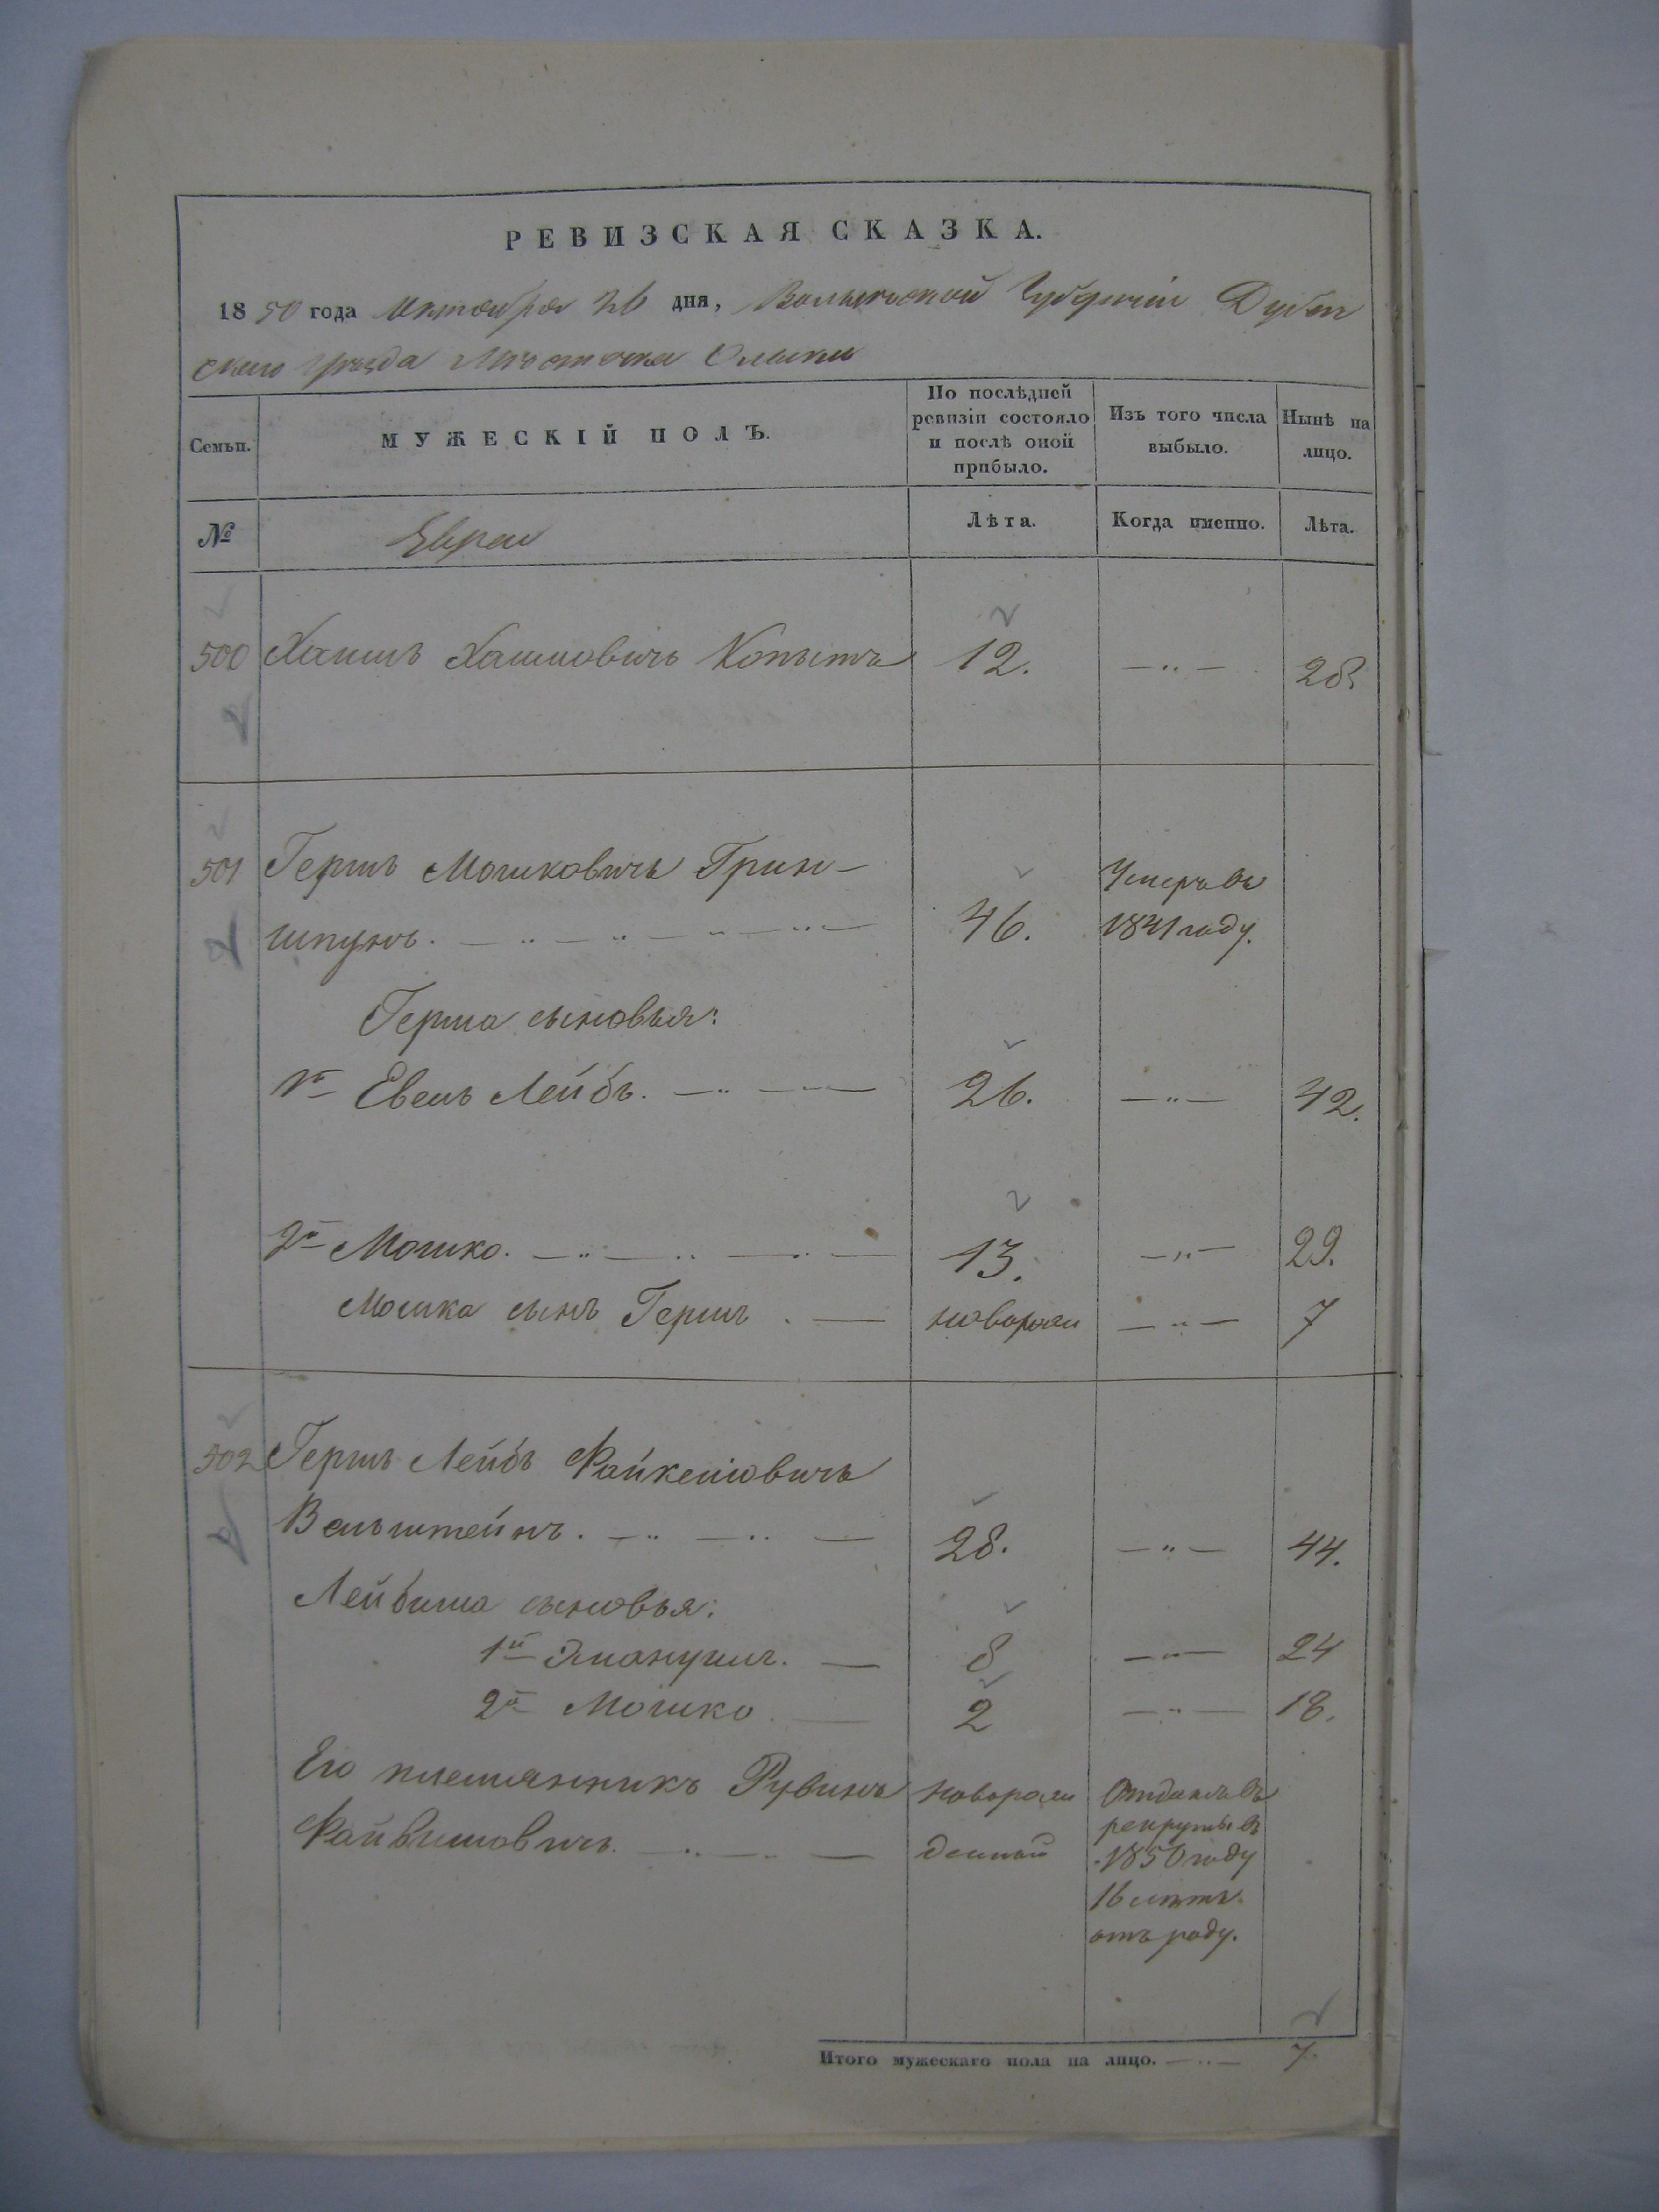 РЕВИЗСКАЯ СКАЗКА.
1850 года Октября 26 дня, Волынской Губерніи Дубен
скаго Уѣзда Мѣстечка Олыки
Семьи.
МУЖЕСКІЙ ПОЛЪ.
По послѣдней ревизіи состояло и послѣ оной прибыло.
Изъ того числа выбыло.
Нынѣ на лицо.
№
Евреи
Лѣта.
Когда именно.
Лѣта.
500 Хаимъ Хаимовичъ Копытъ 12. — „ — 28.
501 Гершъ Мошковичъ Грин-
шпунъ. — „ — „ — „ — „ — 46. Умеръ въ 1841 году.
Герша сыновья:
1й Евель Лейбъ. — „ — „ — 26. — „ — 42.
2й Мошко. — „ — „ — „ — 13. — „ — 29.
Мошка сынъ Гершъ . — новорож — „ — 7
502 Гершъ Лейбъ
Вальштейнъ. — „ — „ — 28. — „ — 44.
Лейбиша сыновья:
1й Эмануилъ. — 8 — „ — 24
2й Мошко . — 2 — „ — 18.
Его племянникъ Рувинъ новорож Отданъ въ
Файвишовичъ. — „ — „ — денный рекруты въ
1850 году
16 лѣтъ
отъ роду.
Итого мужескаго пола на лицо. — „ — 7.